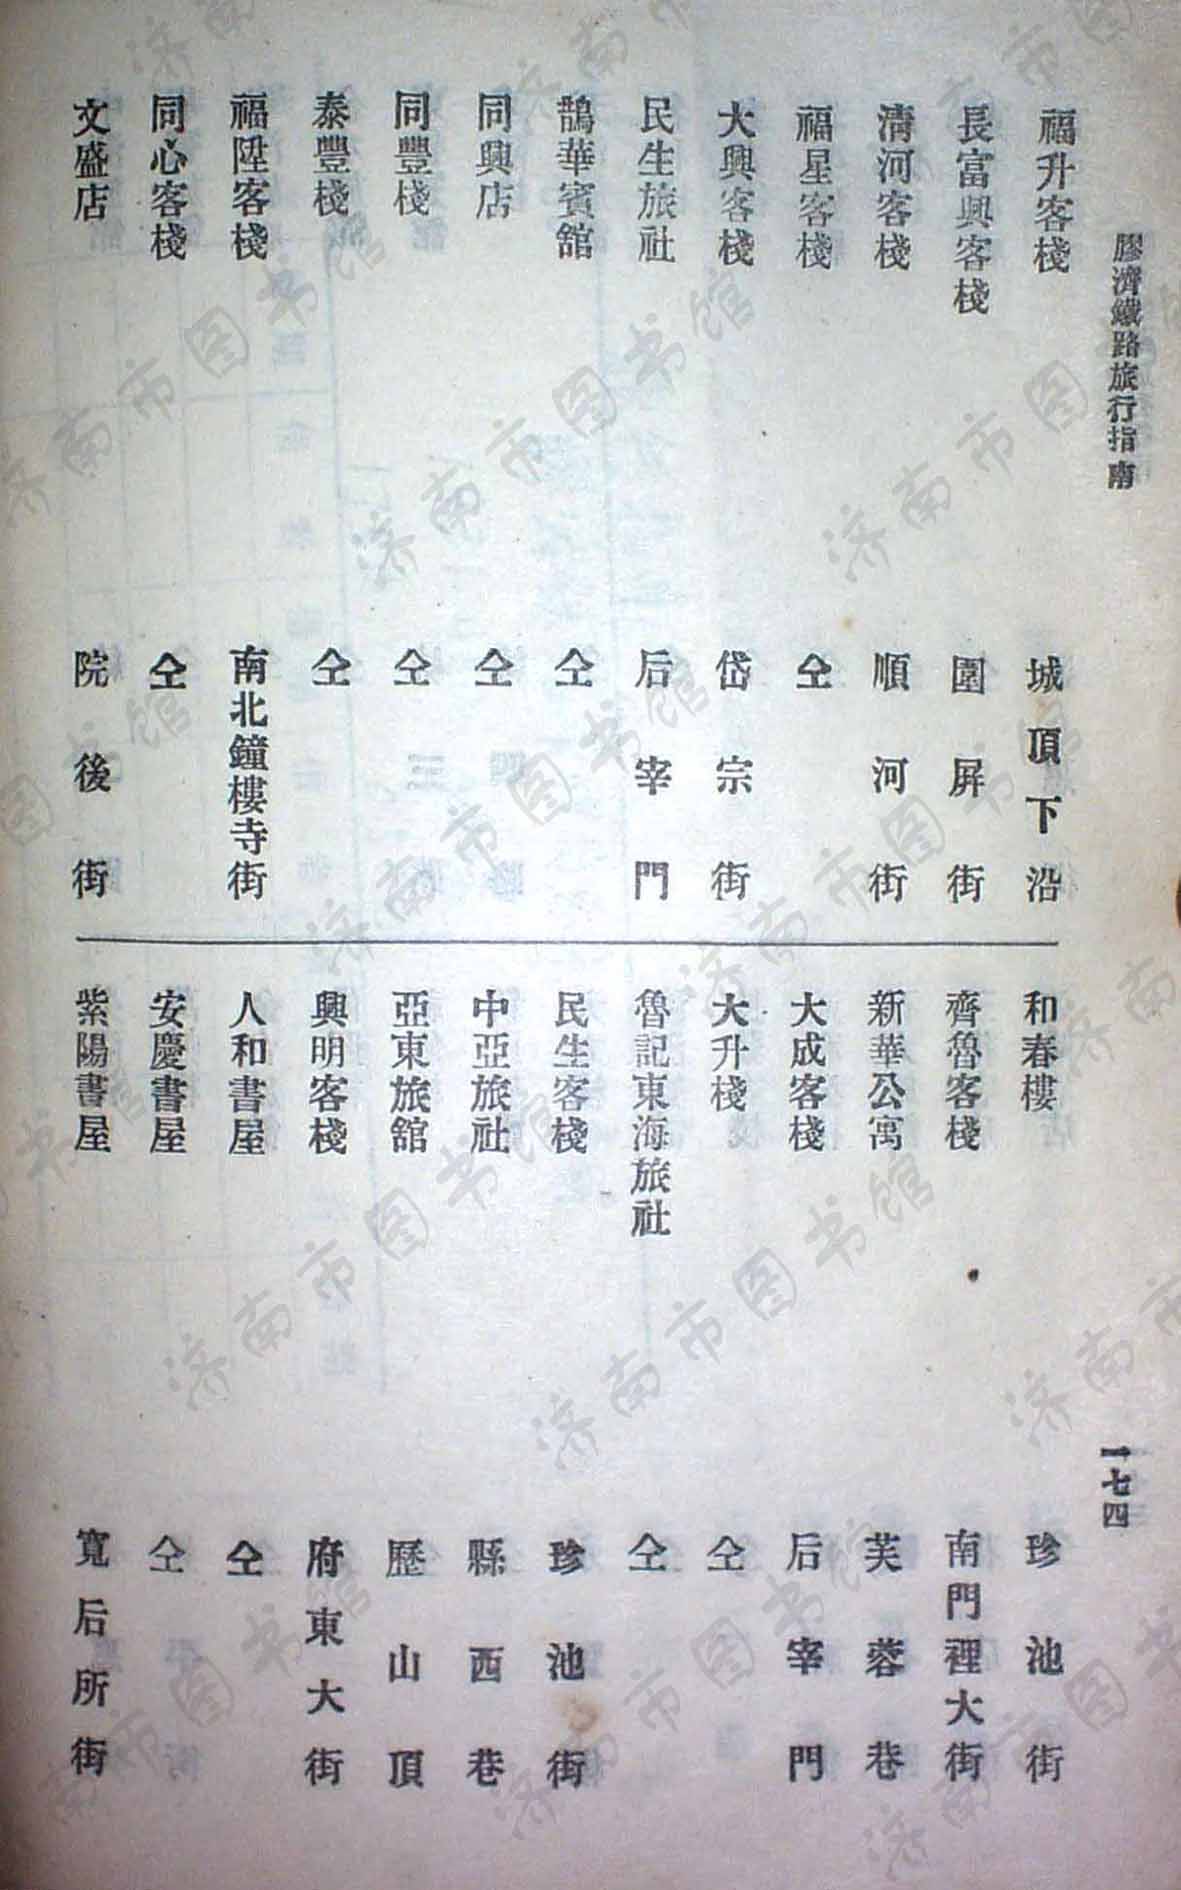 膠濟鐵路旅行指南
一七四
福升客棧 城頂下沿
長富興客棧 圍屏街
清河客棧 順河街
福星客棧 仝
大興客棧 岱宗街
民生旅社 后宰門
鵲華賓舘 仝
同興店 仝
同豐棧 仝
泰豐棧 仝
福陞客棧 南北鐘樓寺街
同心客棧 仝
文盛店 院後街
和春樓 珍池街
齊魯客棧 南門裡大街
新華公寓 芙蓉巷
大成客棧 后宰門
大升棧 仝
魯記東海旅社 仝
民生客棧 珍池街
中亞旅社 縣西巷
亞東旅舘 歷山頂
興明客棧 府東大街
人和書屋 仝
安慶書屋 仝
紫陽書屋 寬后所街
济南市图书馆